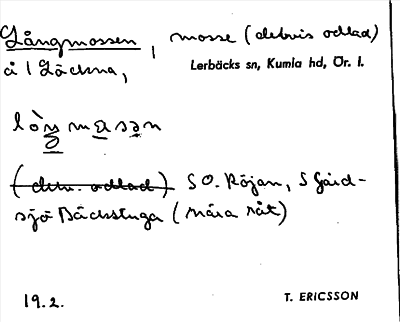 Långmossen, mosse (delvis odlad)
å 1 Gäckna,
Lerbäcks sn, Kumla hd, Ör. l.
(delv. odlad) SO. Röjan, S Gård-
sjö Bäckstuga (nära råt)
19.2.
T. ERICSSON